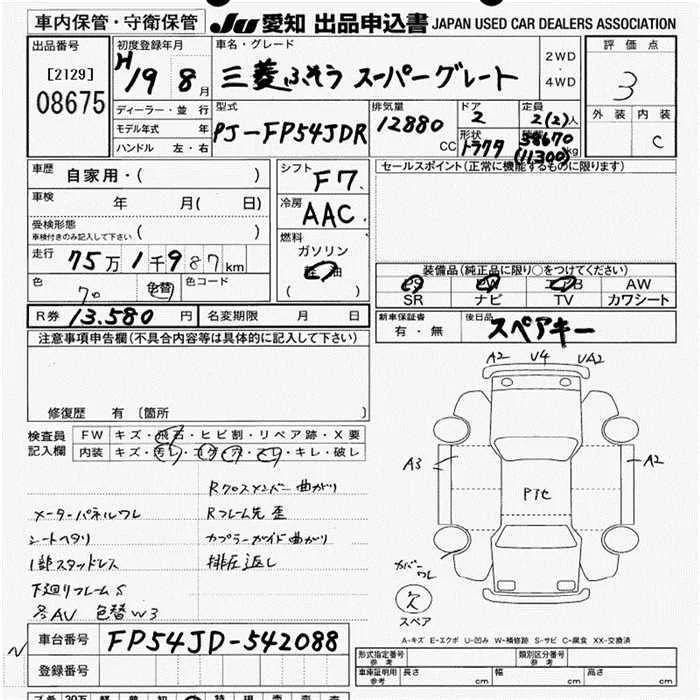 車内保管・守衛保管 JU 愛知 出品申込書 JAPAN USED CAR DEALERS ASSOCIATION
出品番号 初度登録年月 車名・グレード 2WD・4WD 評価点
[2129] H19 8月 三菱ふそう スーパーグレート 3
08675
ディーラー・並行 型式 排気量 ドア 定員 外装 内装
モデル年式 年 PJ-FP54JDR 12880CC 2 2(2)人 C
ハンドル 左・右 形状 トラクタ 積載 38670 (11300)kg
車歴 自家用・( ) シフト F7 セールスポイント(正常に機能するものに限ります)
車検 年 月( 日) 冷房 AAC
受検形態 車検付きのみ記入して下さい ( ) 燃料 ガソリン
走行 75万1千987km 軽油 装備品(純正品に限り○をつけてください)
色 色替 色コード ( ) PS PW エアB AW
SR ナビ TV カワシート
R券 13.580円 名変期限 月 日 新車保証書 有・無 後日品 スペアキー
注意事項申告欄(不具合内容等は具体的に記入して下さい)
A2 V4 UA2
修復歴 有 〔箇所 〕
検査員記入欄 FW キズ・飛石・ヒビ割・リペア跡・X要
内装 キズ・汚レ・コゲ・穴・スレ・キレ・破レ
A3 A2
Rクロスメンバー曲がり
メーターパネルワレ Rフレーム先 歪
シートヘタリ カプラーガイド曲がり
1部スタッドレス 排圧返し
下廻りフレームS
各AU 色替W3
カバーワレ
欠
スペア
A-キズ E-エクボ U-凹み W-補修跡 S-サビ C-腐食 XX-交換済
車台番号 FP54JD-542088
登録番号
形式指定番号 参考 類別区分番号 参考
車庫証明用 参考 長さ cm 幅 cm 高さ cm